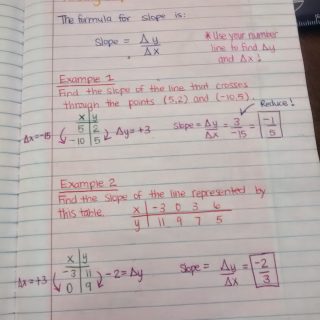 The formula for slope is:
Slope = Δy/Δx
* Use your number
line to find Δy
and Δx!
Example 1
Find the slope of the line that crosses
through the points (5,2) and (-10,5).
x | y
5 | 2
-10 | 5
Δx=-15
Δy=+3
Slope = Δy/Δx = 3/-15 = -1/5
Reduce!
Example 2
Find the slope of the line represented by
this table.
x | -3 0 3 6
y | 11 9 7 5
x | y
-3 | 11
0 | 9
Δx=+3
-2=Δy
Slope = Δy/Δx = -2/3